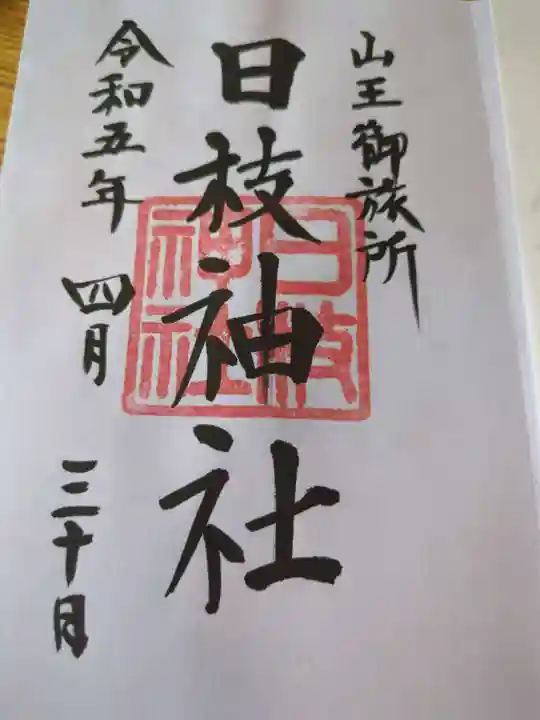 山王御旅所
日枝神社
日枝神社
令和五年
四月
三十月